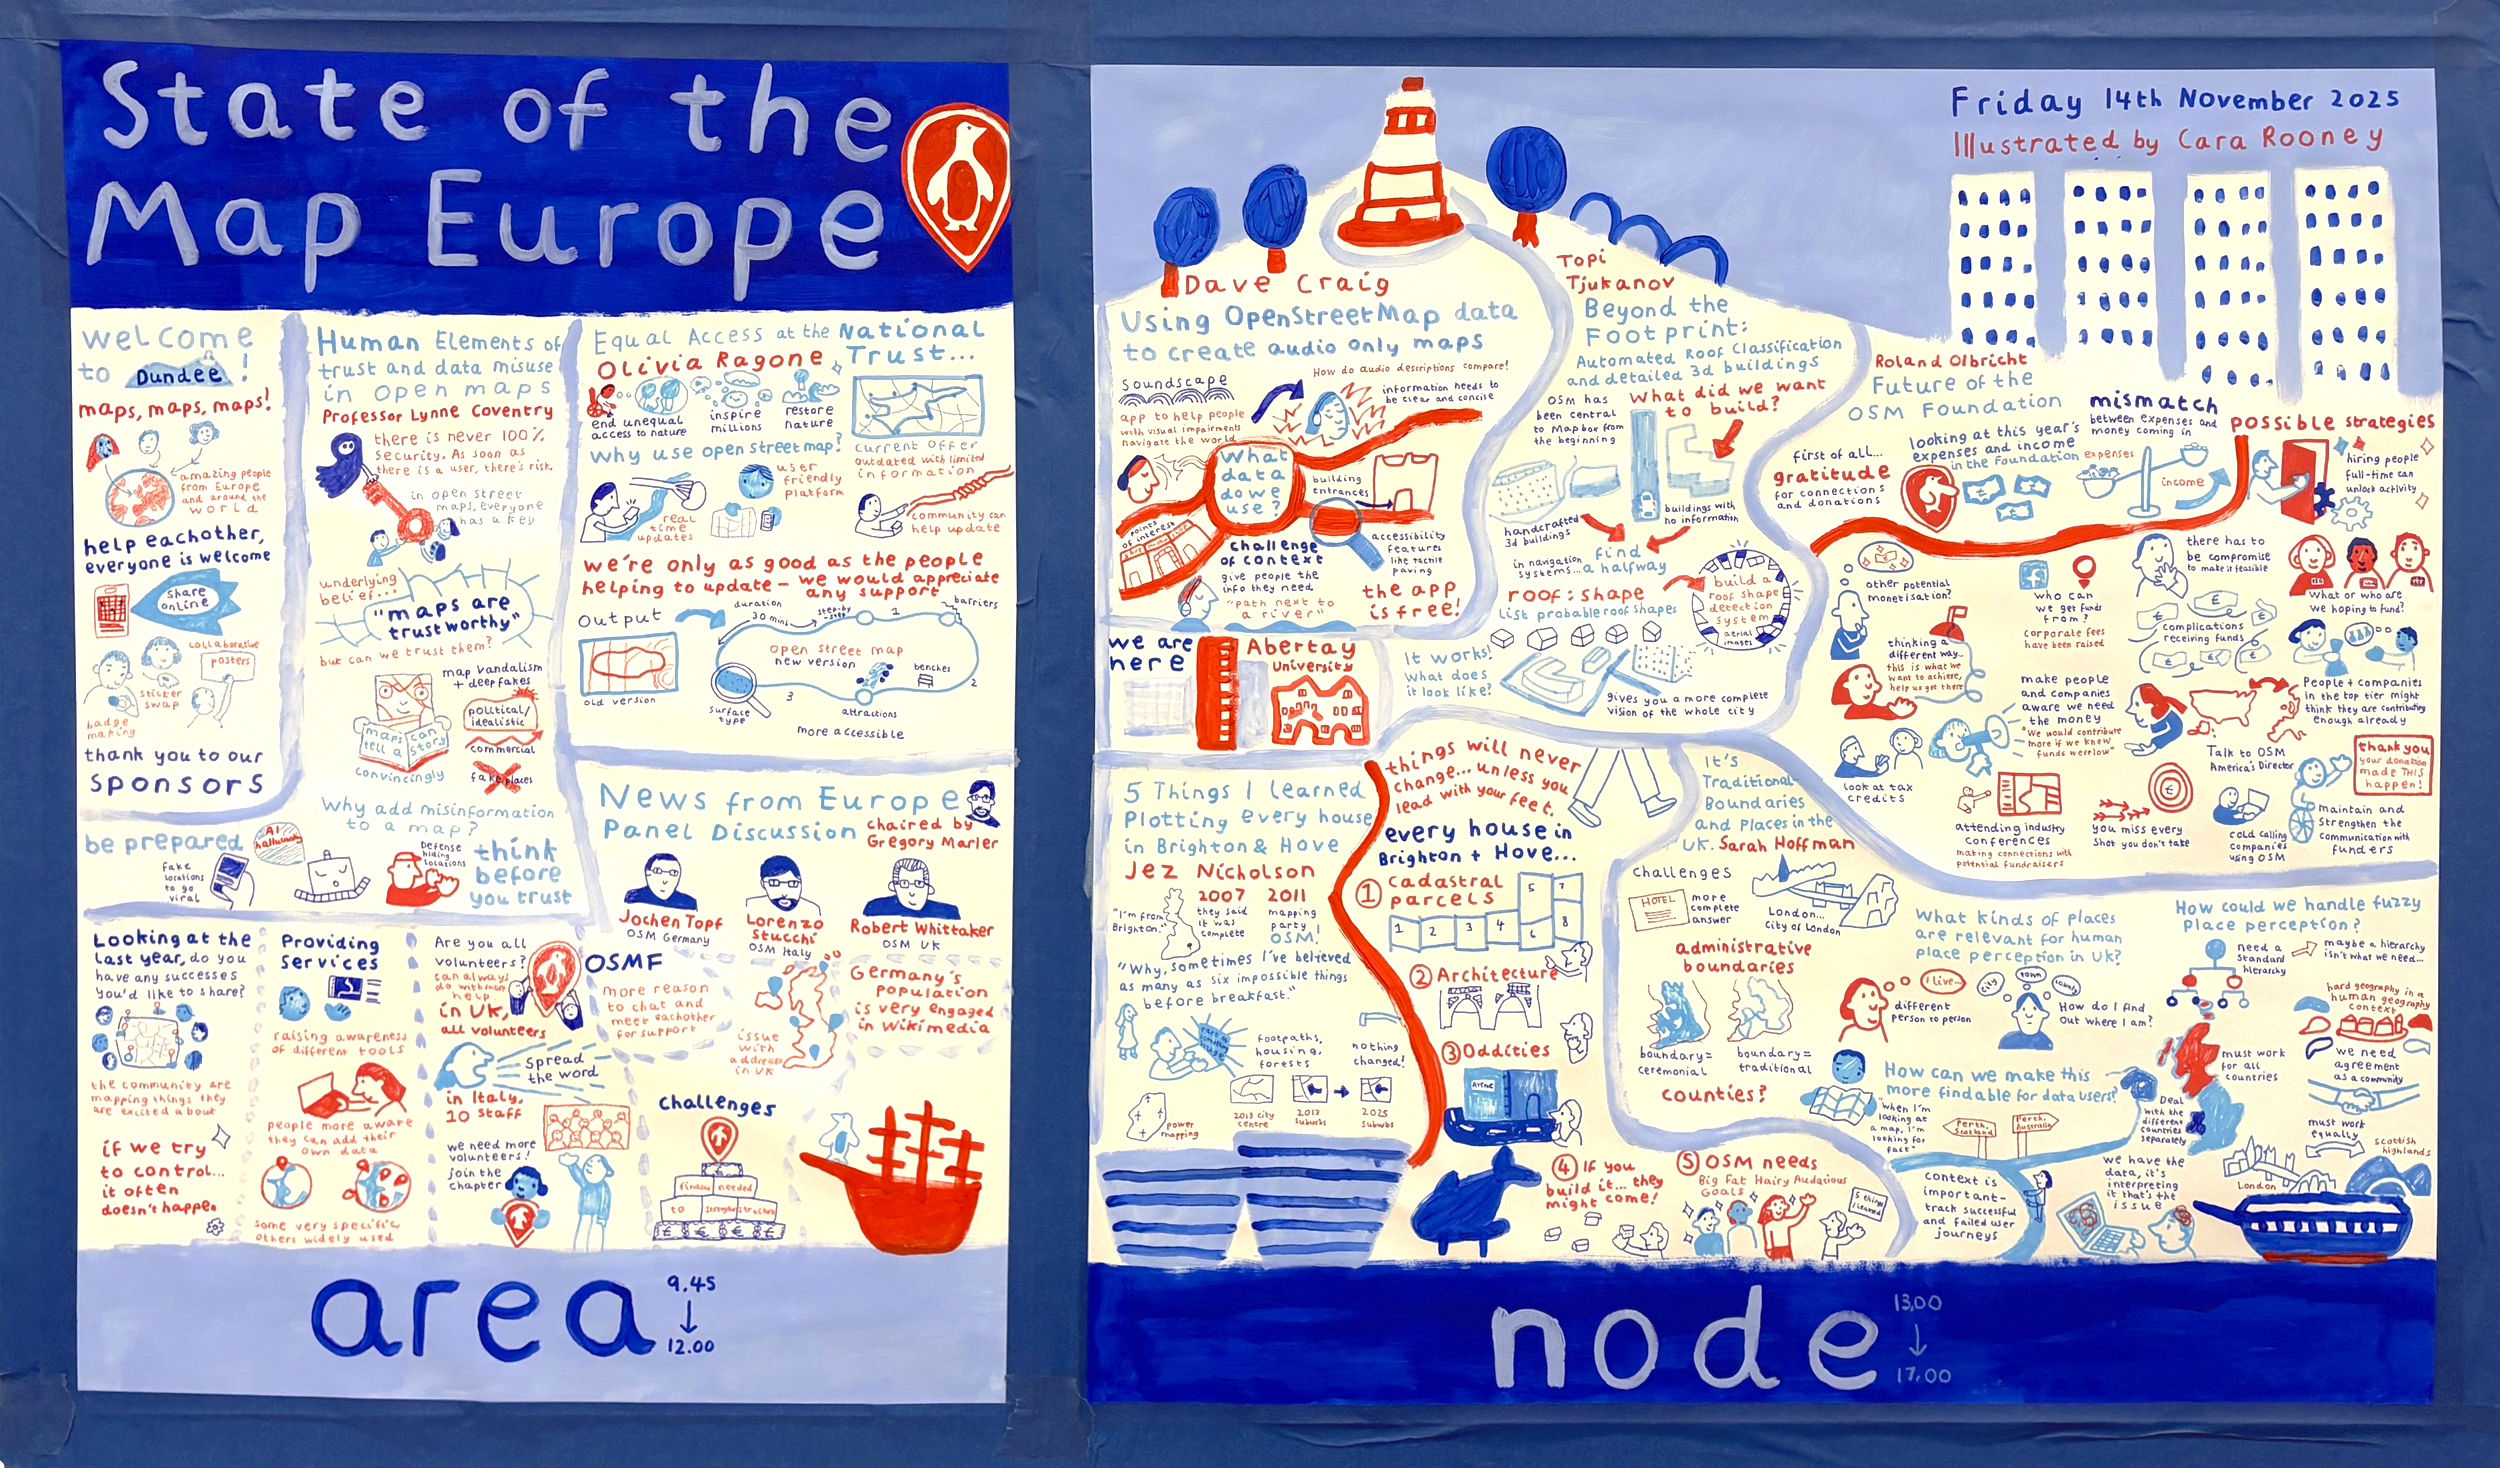 State of the
Map Europe
welcome
to Dundee!
maps, maps, maps!
amazing people
from Europe
and around the
world
help eachother,
everyone is welcome
share
online
collaborative
posters
sticker
swap
badge
making
thank you to our
sponsors
Human Elements of
trust and data misuse
in open maps
Professor Lynne Coventry
there is never 100%
security. As soon as
there is a user, there's risk.
in open street
maps, everyone
has a key
underlying
belief...
"maps are
trustworthy"
but can we trust them?
map vandalism
+ deepfakes
political/
idealistic
commercial
fake places
maps can
tell a story
convincingly
Why add misinformation
to a map?
be prepared
AI
hallucinations
fake
locations
to go
viral
Defense
hiding
locations
think
before
you trust
Equal Access at the National
Trust...
Olivia Ragone
end unequal
access to nature
inspire
millions
restore
nature
current offer
outdated with limited
information
why use open street map?
real
time
updates
user
friendly
platform
community can
help update
we're only as good as the people
helping to update – we would appreciate
any support
output
old version
duration
30 mins
step-by-step
1
barriers
open street map
new version
benches
2
3
surface
type
attractions
more accessible
News from Europe
Panel Discussion
chaired by
Gregory Marler
Jochen Topf
OSM Germany
Lorenzo
Stucchi
OSM Italy
Robert Whittaker
OSM UK
Looking at the
last year, do you
have any successes
you'd like to share?
the community are
mapping things they
are excited about
if we try
to control...
it often
doesn't happen
Providing
Services
raising awareness
of different tools
people more aware
they can add their
own data
some very specific
others widely used
Are you all
volunteers?
can always
do with more
help
in UK,
all volunteers
Spread
the word
in Italy,
10 staff
we need more
volunteers!
join the
chapter
OSMF
more reason
to chat and
meet eachother
for support
issue
with
address
in UK
Germany's
population
is very engaged
in Wikimedia
Challenges
finance needed
to strengthen structure
area
9.45
↓
12.00
Friday 14th November 2025
Illustrated by Cara Rooney
Dave Craig
Using OpenStreetMap data
to create audio only maps
Soundscape
app to help people
with visual impairments
navigate the world
How do audio descriptions compare?
information needs to
be clear and concise
What
data
do we
use?
building
entrances
points
of interest
accessibility
features
like tactile
paving
challenge
of context
give people the
info they need
"path next to
a river"
the app
is free!
we are
here
Abertay
University
Topi
Tjukanov
Beyond the
Footprint:
Automated Roof Classification
and detailed 3d buildings
OSM has
been central
to Mapbox from
the beginning
What did we want
to build?
handcrafted
3d buildings
buildings with
no information
in navigation
systems...
find
a halfway
roof:shape
List probable roof shapes
build a
roof shape
detection
system
aerial
images
It works!
What does
it look like?
gives you a more complete
vision of the whole city
Roland Olbricht
Future of the
OSM Foundation
first of all...
gratitude
for connections
and donations
looking at this year's
expenses and income
in the Foundation
mismatch
between expenses and
money coming in
expenses
income
possible strategies
hiring people
full-time can
unlock activity
other potential
monetisation?
who can
we get funds
from?
corporate fees
have been raised
there has to
be compromise
to make it feasible
What or who are
we hoping to fund?
complications
receiving funds
thinking a
different way...
this is what we
want to achieve,
help us get there
make people
and companies
aware we need
the money
"We would contribute
more if we knew
funds were low"
People + companies
in the top tier might
think they are contributing
enough already
Talk to OSM
America's Director
thank you
your donation
made THIS
happen!
look at tax
credits
attending industry
conferences
making connections with
potential fundraisers
you miss every
shot you don't take
cold calling
companies
using OSM
maintain and
strengthen the
communication with
funders
5 Things I learned
Plotting every house
in Brighton & Hove
Jez Nicholson
"I'm from
Brighton."
2007
they said
it was
complete
2011
mapping
party!
OSM!
"Why, sometimes I've believed
as many as six impossible things
before breakfast."
footpaths,
housing,
forests
nothing
changed!
power
mapping
2013 city
centre
2013
suburbs
2025
suburbs
things will never
change... unless you
lead with your feet.
every house in
Brighton + Hove...
① Cadastral
parcels
1 2 3 4 5 6 7 8
② Architecture
③ Oddities
Avenue
④ If you
build it... they
might come!
⑤ OSM needs
Big Fat Hairy Audacious
Goals
5 things
I learned
It's
Traditional-
Boundaries
and Places in the
UK. Sarah Hoffman
Challenges
HOTEL
more
complete
answer
London...
City of London
administrative
boundaries
boundary=
ceremonial
boundary=
traditional
counties?
What kinds of places
are relevant for human
place perception in UK?
I live...
different
person to person
city
town
county
How do I find
out where I am?
How can we make this
more findable for data users?
"When I'm
looking at
a map, I'm
looking for
fact"
Perth,
Scotland
Perth,
Australia
context is
important-
track successful
and failed user
journeys
How could we handle fuzzy
Place perception?
need a
standard
hierarchy
maybe a hierarchy
isn't what we need...
hard geography in a
human geography
context
must work
for all
countries
we need
agreement
as a community
Deal
with the
different
countries
separately
must work
equally
we have the
data, it's
interpreting
it that's the
issue
London
scottish
highlands
node
13.00
↓
17.00